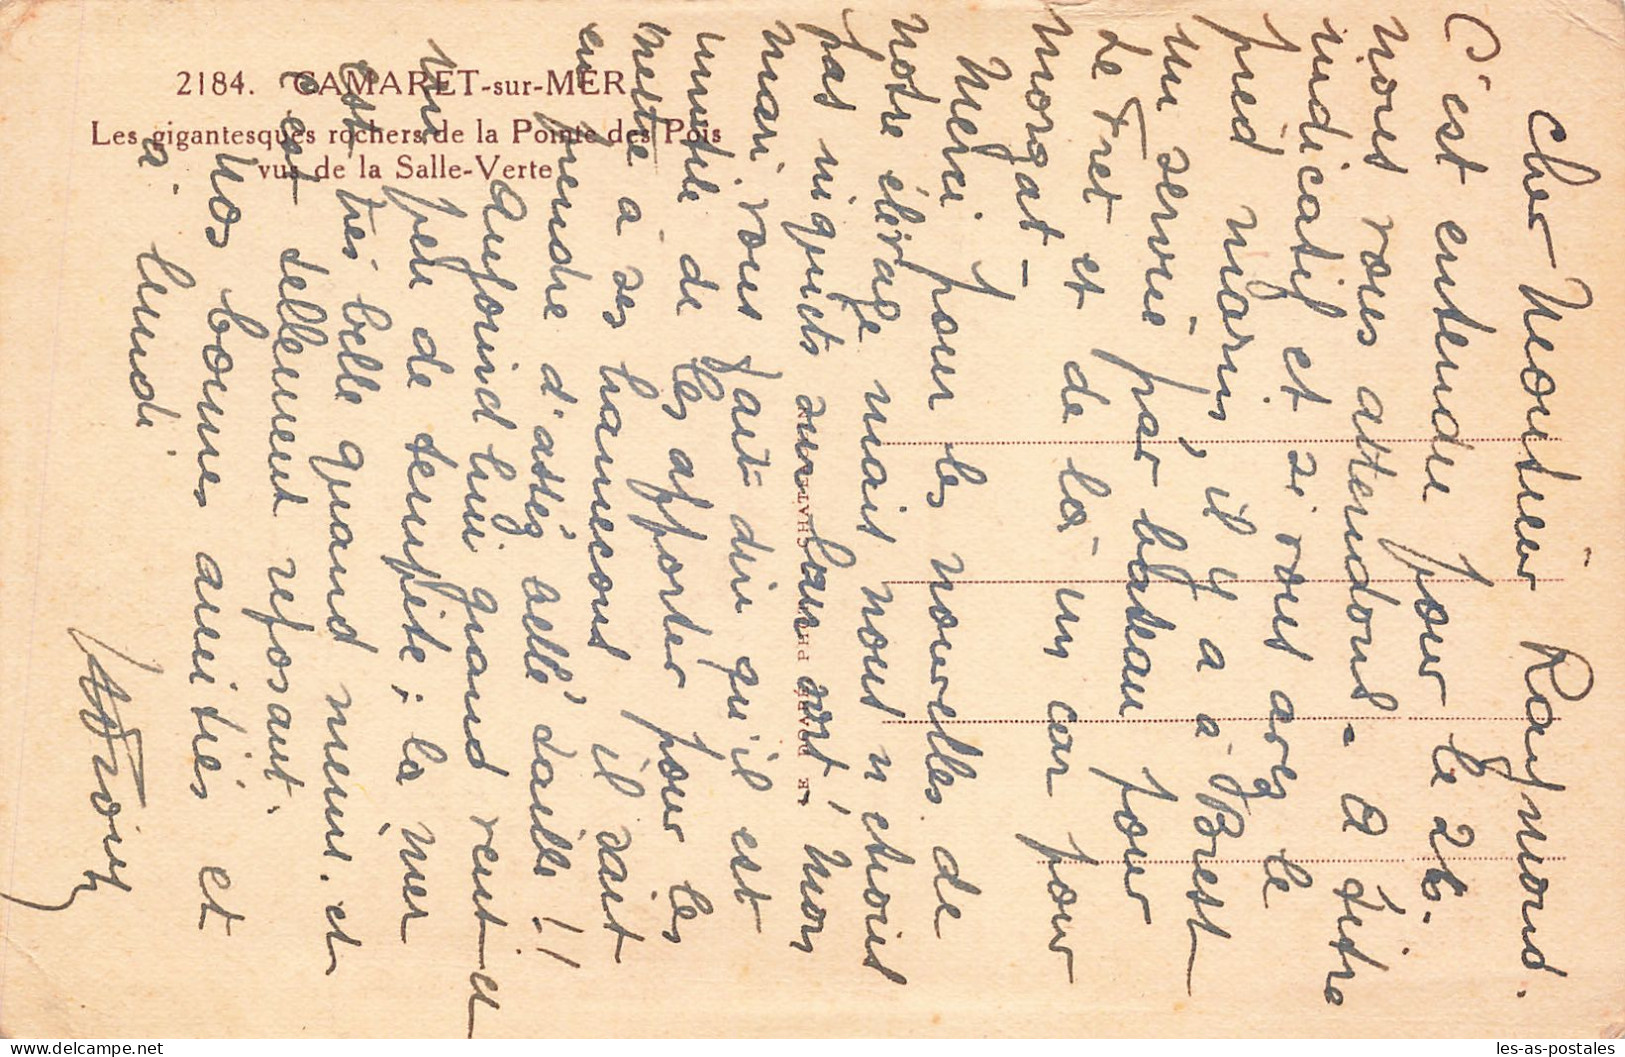 2184. CAMARET-sur-MER
Les gigantesques rochers de la Pointe des Pois
vus de la Salle-Verte
Cher Monsieur Raymond.
C'est entendu pour le 26.
nous vous attendons - A titre
indicatif et si vous avez le
pied marin, il y a à Brest
un service par bateau pour
Le Fret et de là un car pour
Morgat -
Merci pour les nouvelles de
notre élevage mais nous n'étions
pas inquiets sur leur sort! Mon
mari vous fait dire qu'il est
inutile de les apporter pour les
mettre à ses hameçons il sait
en prendre d'assez belle taille!!
Aujourd'hui grand vent et
un peu de tempête; la mer
est très belle quand même. et
c'est tellement reposant.
Nos bonnes amitiés et
à lundi
LE DOARE PHOT
CHAT
les-as-postales